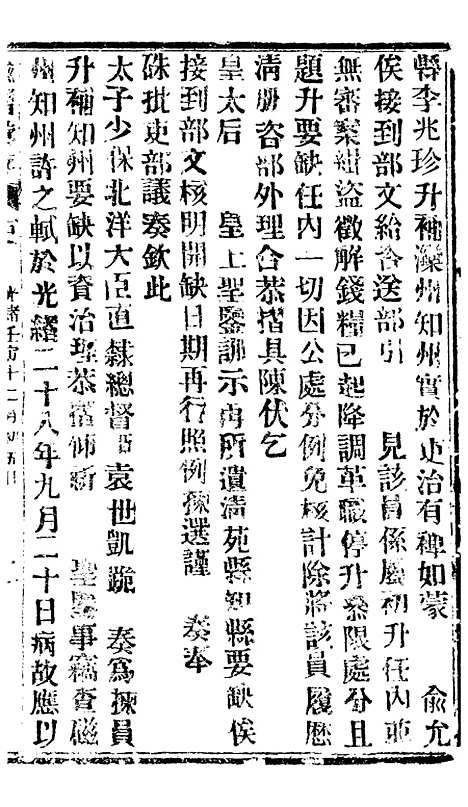 縣李兆珍升補灤州知州實於吏治有裨如蒙 俞允
俟接到部文給咨送部引 見該員係歷初升任內並
無審案緝盜徵解錢糧已起降調革職停升參限處分且
題升要缺任內一切因公處分例免核計除將該員履歷
清册咨部外理合恭摺具陳伏乞
皇太后 皇上聖鑒訓示再所遺清苑縣知縣要缺俟
接到部文核明開缺日期再行照例揀選謹 奏奉
硃批吏部議奏欽此
太子少保北洋大臣直隸總督臣袁世凱跪 奏爲揀員
升補知州要缺以資治理恭摺仰祈 聖鑒事竊查磁
州知州許之軾於光緒二十八年九月二十日病故應以